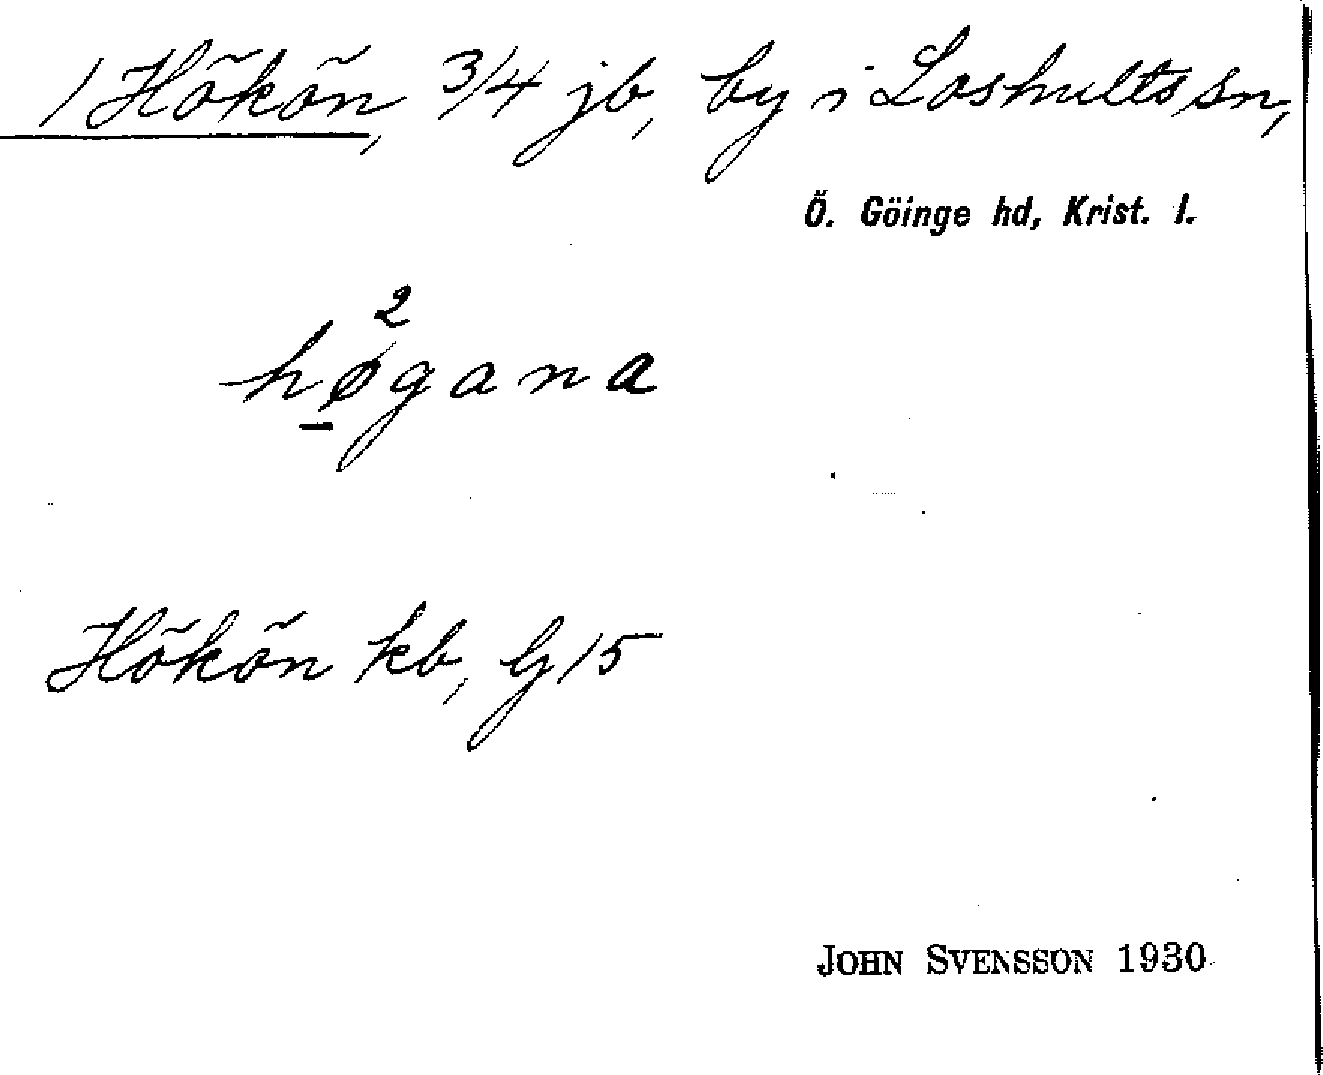 1 Hökön, 3/4 jb, by i Loshults sn,
Ö. Göinge hd, Krist. l.
2
høgana
Hökön kb, G 15
JOHN SVENSSON 1930